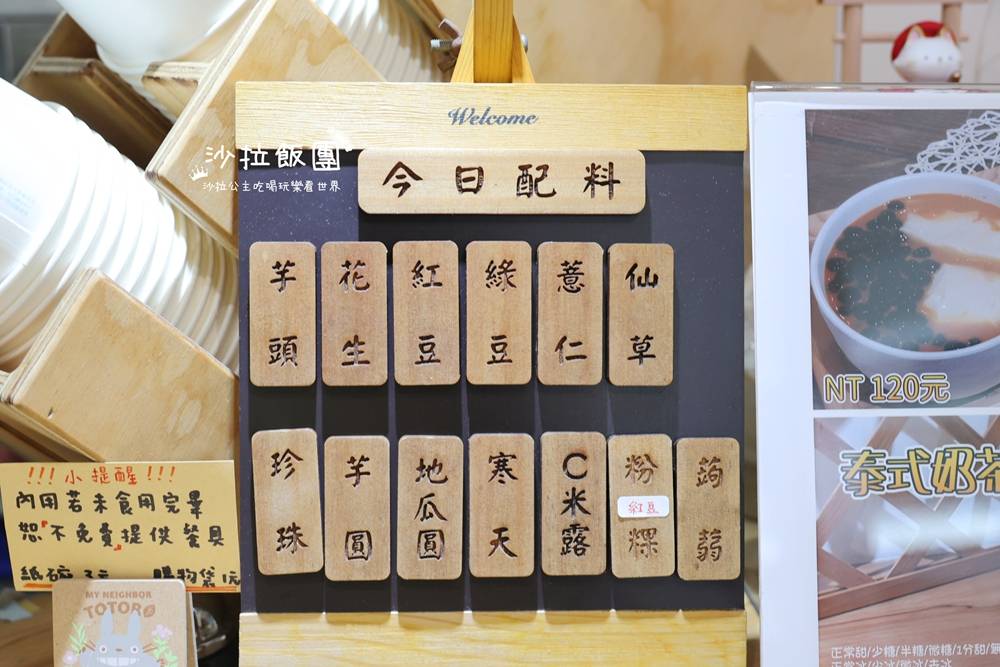 Welcome
沙拉飯團
沙拉公主吃喝玩樂看世界
今日配料
芋頭
花生
紅豆
綠豆
薏仁
仙草
珍珠
芋圓
地瓜圓
寒天
C米露
粉粿
紅豆
蒟蒻
!!!小提醒!!!
內用若未食用完畢
恕不免費提供餐具
紙碗 3元 購物袋1元
MY NEIGHBOR
TOTORO
NT 120元
泰式奶茶
正常甜/少糖/半糖/微糖/1分甜/